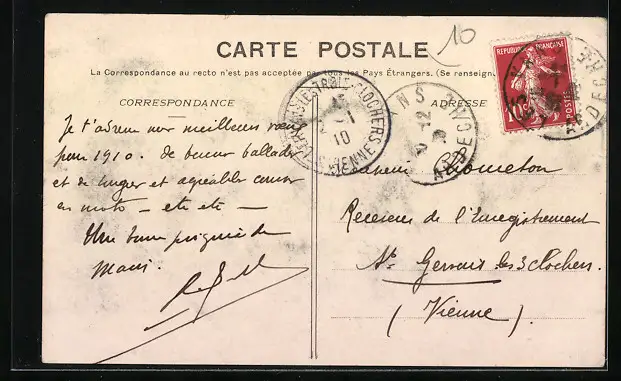 10
CARTE POSTALE
La Correspondance au recto n'est pas acceptée par tous les Pays Étrangers. (Se renseign
CORRESPONDANCE
ADRESSE
REPUBLIQUE FRANÇAISE
10c
POSTES
ST GERVAIS LES TROIS CLOCHERS
1
10
VIENNE
NS
31-12
ARDECHE
Je t'adresse mes meilleurs vœux
pour 1910. de bonnes ballades
et de longues et agréables courses
en moto — etc etc —
Une bonne poignée de
Main.
Monsieur
Receveur de l'Enregistrement
St Gervais les 3 clochers.
(Vienne)